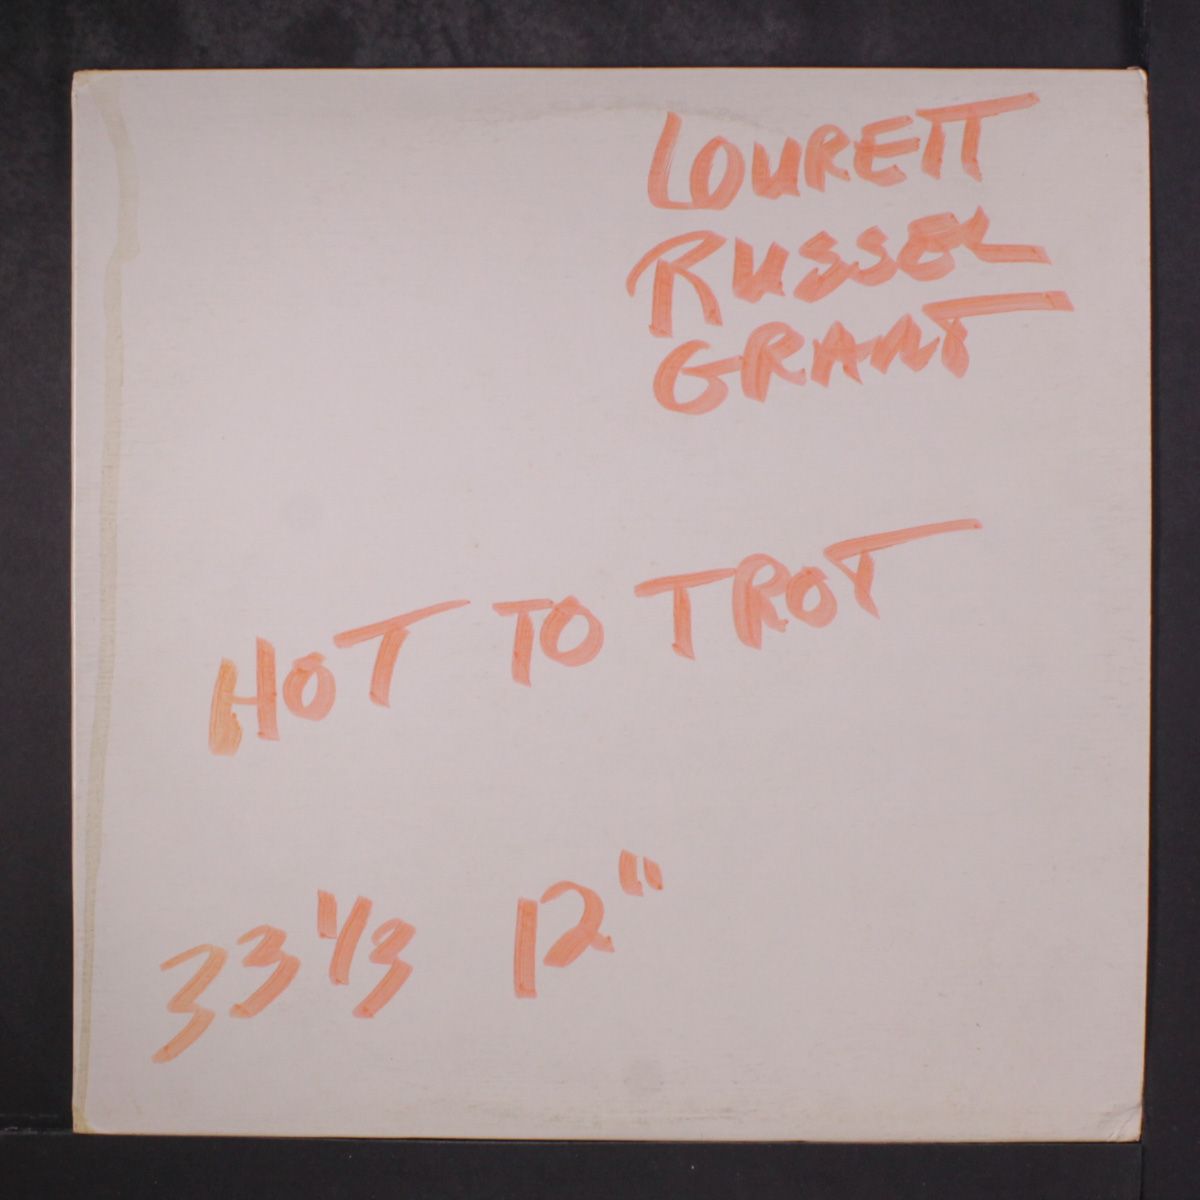 LOURETT
RUSSEL
GRANT
HOT TO TROT
33 1/3 12"